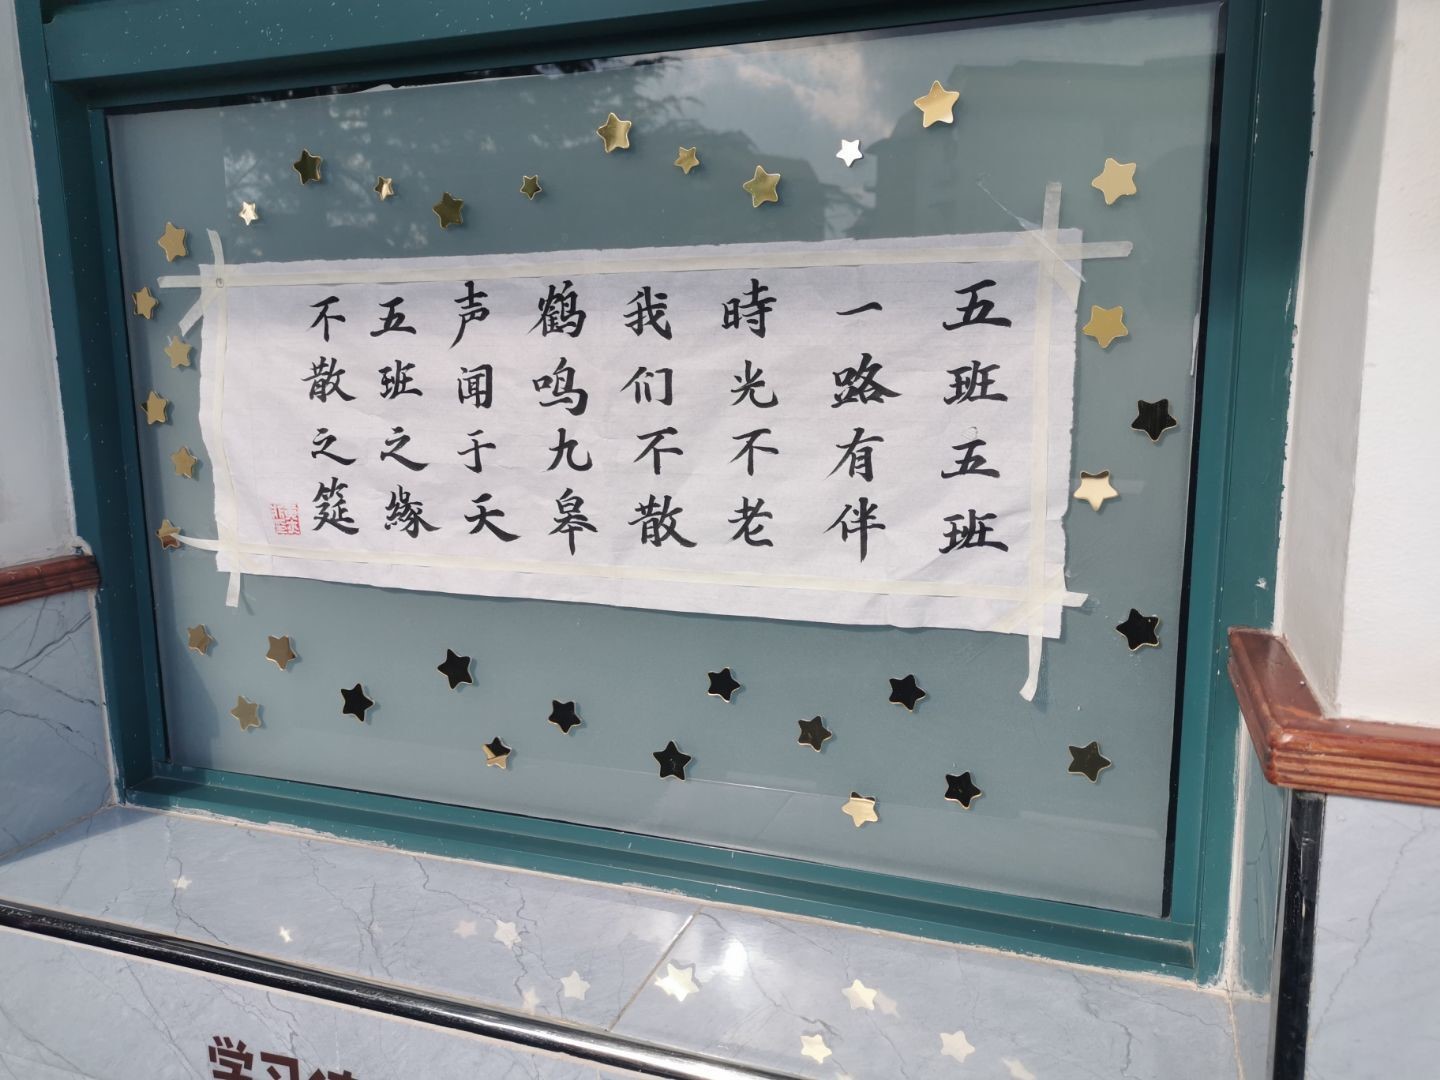 五班五班
一路有伴
時光不老
我们不散
鹤鸣九皋
声闻于天
五班之緣
不散之筵
学习